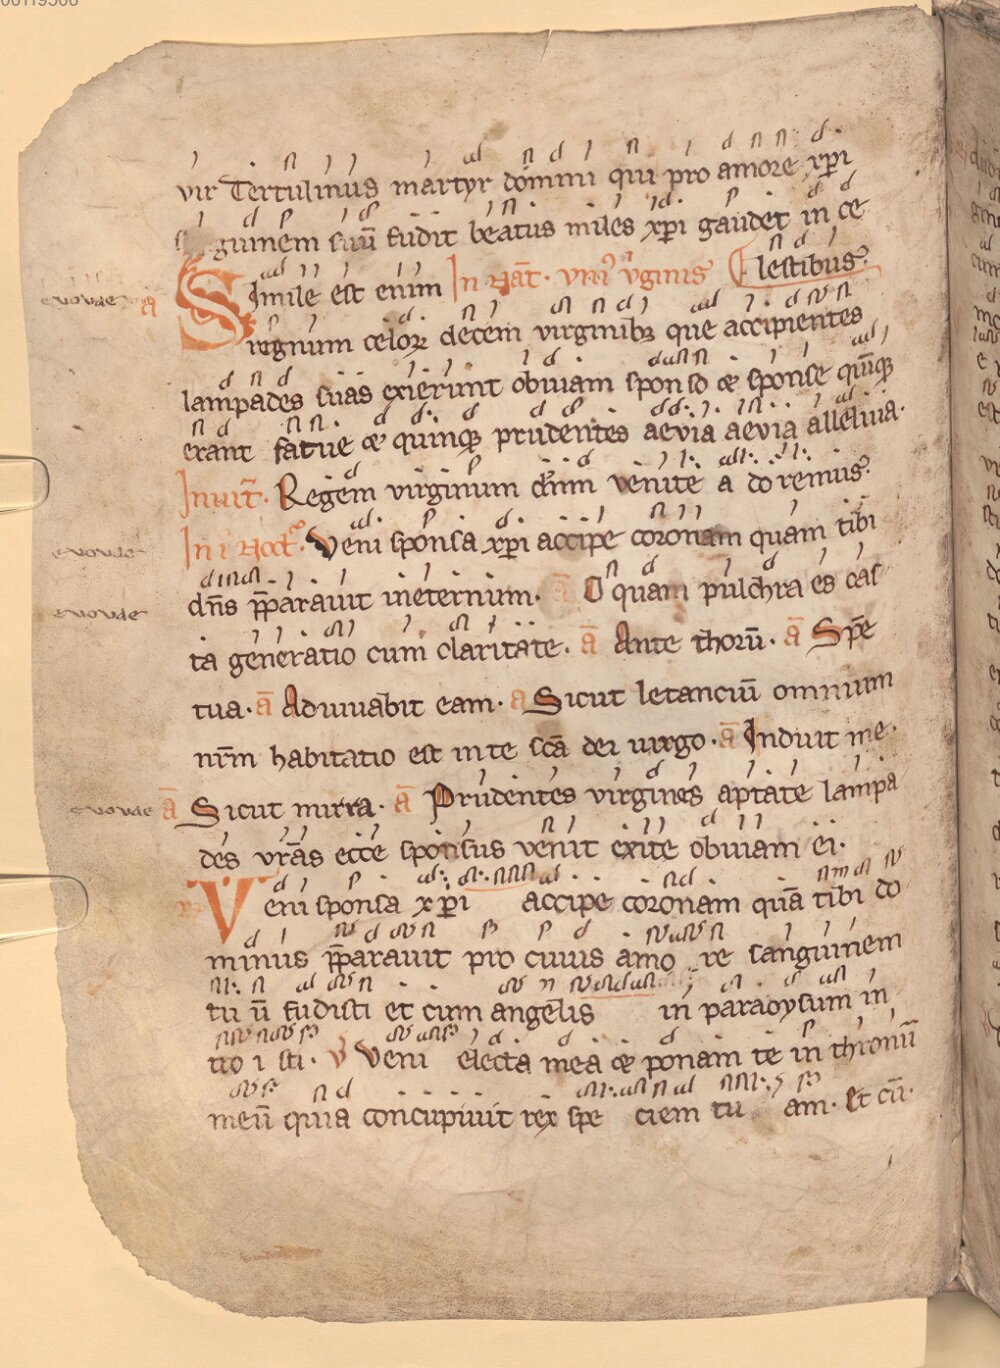 vir Tertulinus martyr domini qui pro amore xp̄i
guinem suū fudit beatus miles xp̄i gaudet in ce
Simile est enim In nat̄. uniꝰ v̓ginis lestibus
euouae a
regnum celoꝝ decem virginibꝫ que accipientes
lampades suas exierunt obuiam sponso ⁊ sponse quīqꝫ
erant fatue ⁊ quinqꝫ prudentes aevia aevia alleluia.
Inuit̄. Regem virginum dn̄m venite adoremus.
In i Noct̄. Veni sponsa xp̄i accipe coronam quam tibi
euouae
dn̄s p̄parauit ineternum. ā O quam pulchra es cas
euouae
ta generatio cum claritate. ā Ante thorū. ā Spē
tua. ā Adiuuabit eam. a Sicut letanciū omnium
nr̄m habitatio est inte sc̄a dei uirgo. ā Induit me.
euouae ā Sicut mirra. ā Prudentes virgines aptate lampa
des vr̄as ecce sponsus venit exite obuiam ei.
Veni sponsa xp̄i accipe coronam quā tibi do
minus p̄parauit pro cuius amo re sanguinem
tu ū fudisti et cum angelis in paradysum in
tro i sti. v̄ Veni electa mea ⁊ ponam te in thronū
meū quia concupiuit rex spe ciem tu am. Et cū.